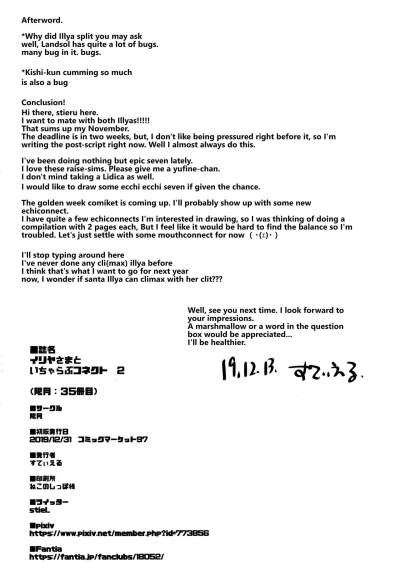 Afterword.
*Why did Illya split you may ask
well, Landsol has quite a lot of bugs.
many bug in it. bugs.
*Kishi-kun cumming so much
is also a bug
Conclusion!
Hi there, stieru here.
I want to mate with both Illyas!!!!!
That sums up my November.
The deadline is in two weeks, but, I don't like being pressured right before it, so I'm
writing the post-script right now. Well I almost always do this.
I've been doing nothing but epic seven lately.
I love these raise-sims. Please give me a yufine-chan.
I don't mind taking a Lidica as well.
I would like to draw some ecchi ecchi seven if given the chance.
The golden week comiket is coming up. I'll probably show up with some new
echiconnect.
I have quite a few echiconnects I'm interested in drawing, so I was thinking of doing a
compilation with 2 pages each, But I feel like it would be hard to find the balance so I'm
troubled. Let's just settle with some mouthconnect for now ( ･(ｪ)･ )
I'll stop typing around here
I've never done any cli(max) illya before
I think that's what I want to go for next year
now, I wonder if santa Illya can climax with her clit???
Well, see you next time. I look forward to
your impressions.
A marshmallow or a word in the question
box would be appreciated...
I'll be healthier.
19.12.13. すてぃえる.
■誌名
イリヤさまと
いちゃらぶコネクト 2
(限月：35冊目)
■サークル
限月
■初版発行日
2019/12/31 コミックマーケット97
■発行者
すてぃえる
■印刷所
ねこのしっぽ様
■ツイッター
stieL
■pixiv
https://www.pixiv.net/member.php?id=773856
■Fantia
https://fantia.jp/fanclubs/18052/